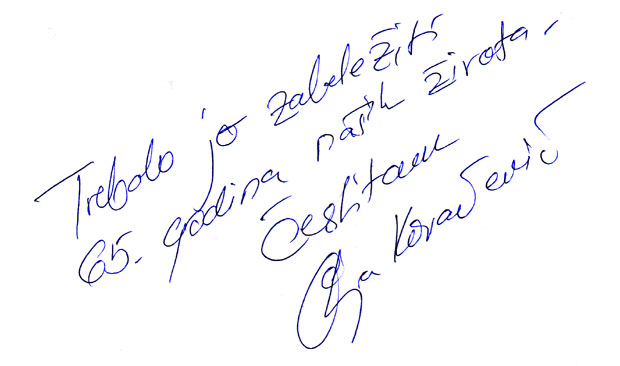 Trebalo je zabeležiti
65. godina naših života.
Čestitam
Olja Kovačević